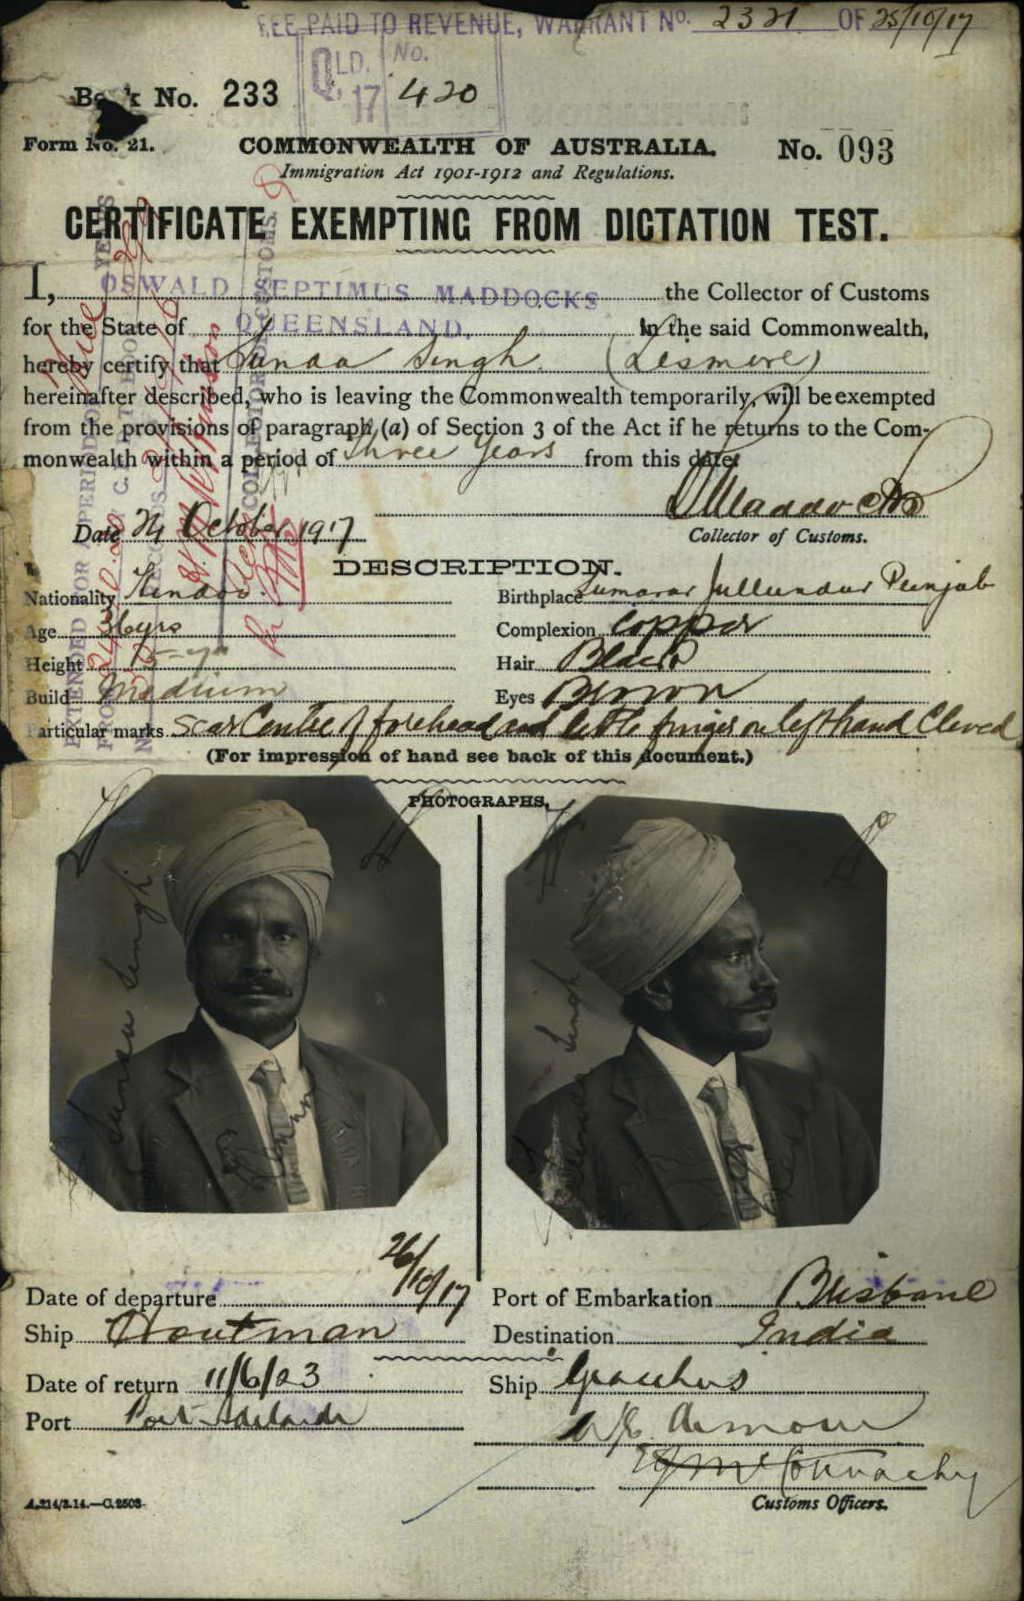 FEE PAID TO REVENUE, WARRANT No. 2321 OF 25/10/17
QLD. 17 No. 420
Book No. 233
Form No. 21.
COMMONWEALTH OF AUSTRALIA.
No. 093
Immigration Act 1901-1912 and Regulations.
CERTIFICATE EXEMPTING FROM DICTATION TEST.
I, OSWALD SEPTIMUS MADDOCKS the Collector of Customs
for the State of QUEENSLAND, in the said Commonwealth,
hereby certify that Singh. (Lismore)
hereinafter described, who is leaving the Commonwealth temporarily, will be exempted
from the provisions of paragraph (a) of Section 3 of the Act if he returns to the Com-
monwealth within a period of Three Years from this date.
Date 24 October 1917
Collector of Customs.
EXTENDED FOR A PERIOD OF Three YEARS
FROM
DESCRIPTION.
Nationality Hindoo.
Birthplace Jullundur Punjab
Age 36 yrs
Complexion Copper
Height
Hair Black
Build Medium
Eyes Brown
Particular marks Scar Centre of forehead and little finger on left hand
(For impression of hand see back of this document.)
PHOTOGRAPHS.
Singh
Singh
Date of departure 26/10/17
Port of Embarkation Brisbane
Ship Houtman
Destination India
Date of return 11/6/23
Ship Gracchus
Port Port Adelaide
McConnachy
A.214/3.14.—C.2503.
Customs Officers.